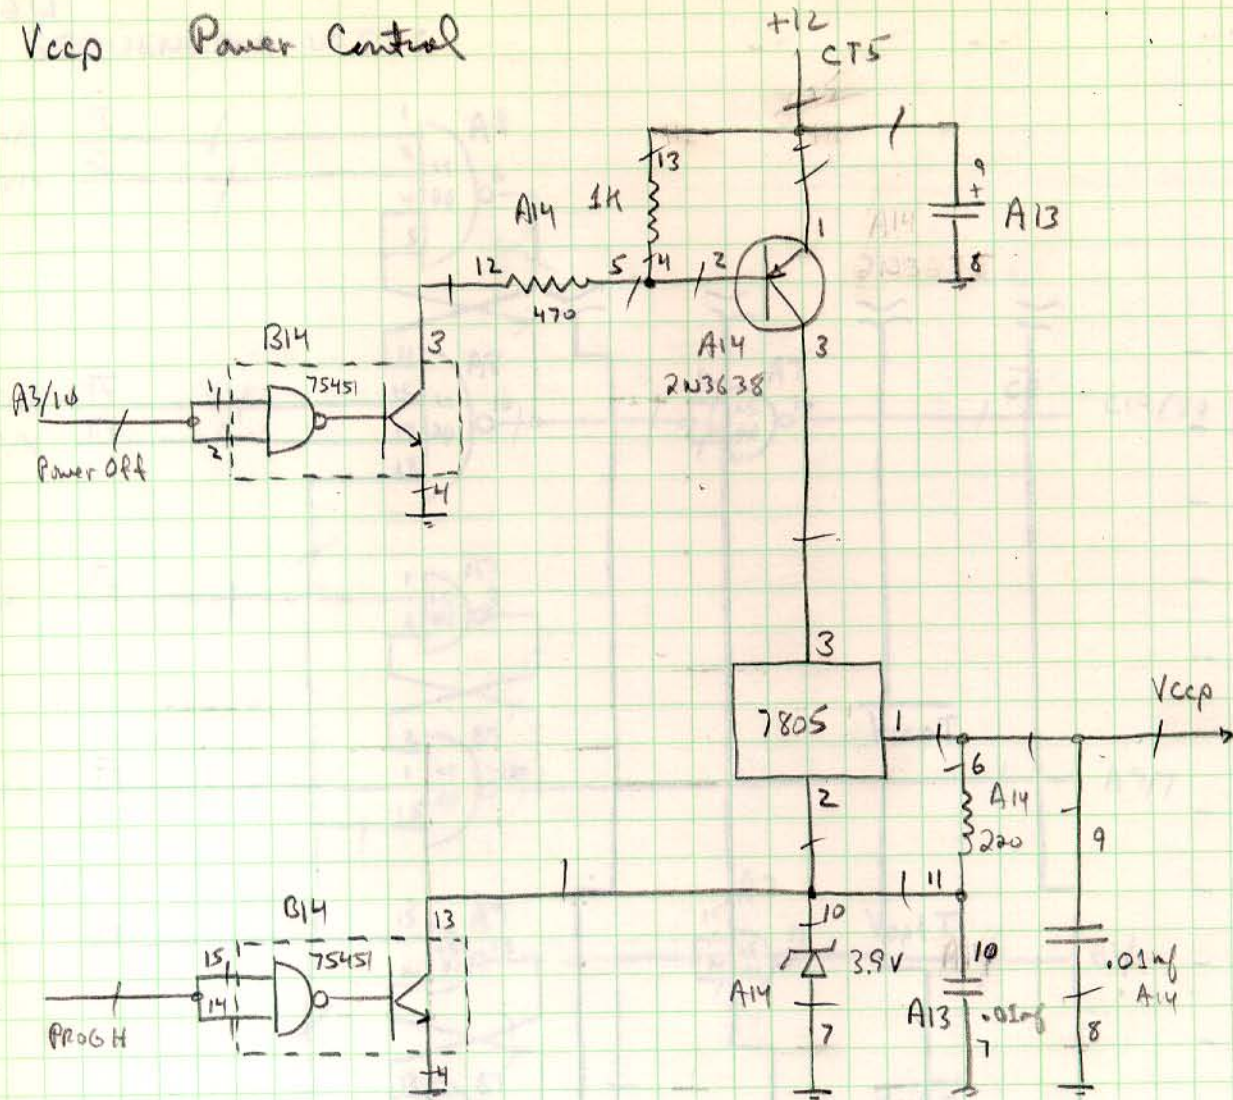 Vccp Power Control
+12
CT5
13
A14 1K
9
+
A13
8
1
12
470
5
4
2
A14
2N3638
3
B14
3
75451
1
2
A3/10
Power Off
4
3
7805
1
Vccp
2
6
A14
220
9
11
B14
13
75451
15
14
PROG H
4
10
3.9V
A14
7
10
A13 .01mf
7
.01mf
A14
8